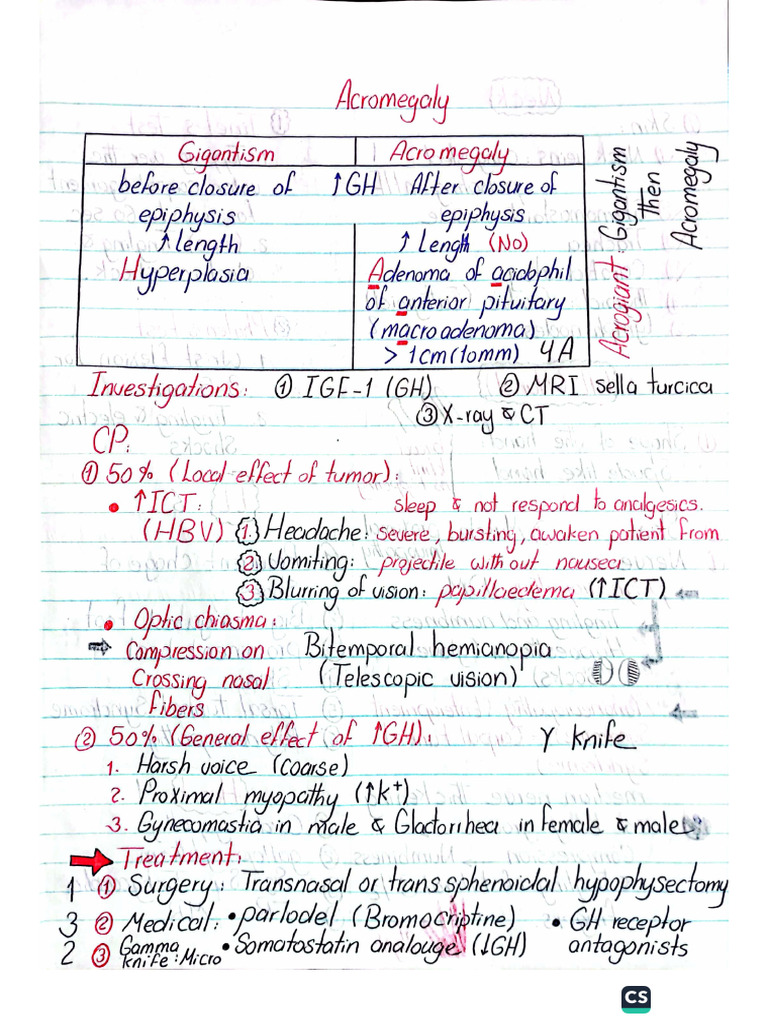 Acromegaly
Gigantism Acromegaly
before closure of ↑GH After closure of
epiphysis epiphysis
↑length ↑Length (No)
Hyperplasia Adenoma of acidophil
of anterior pituitary
(macroadenoma)
> 1cm (10mm) 4A
Acrogiant: Gigantism
then
Acromegaly
Investigations: ① IGF-1 (GH) ② MRI sella turcica
③ X-ray & CT
CP:
① 50% (Local effect of tumor):
• ↑ICT: sleep & not respond to analgesics.
(HBV) 1. Headache: severe, bursting, awaken patient from
2. Vomiting: projectile without nausea
3. Blurring of vision: papilloedema (↑ICT)
• Optic chiasma:
⇒ Compression on Bitemporal hemianopia
Crossing nasal (Telescopic vision)
fibers
② 50% (General effect of ↑GH): γ knife
1. Harsh voice (coarse)
2. Proximal myopathy (↑K⁺)
3. Gynecomastia in male & Glactorrhea in female & male
→ Treatment:
1 ① Surgery: Transnasal or transsphenoidal hypophysectomy
3 ② Medical: • parlodel (Bromocriptine) • GH receptor
antagonists
2 ③ Gamma knife: Micro • Somatostatin analouge (↓GH)
CS